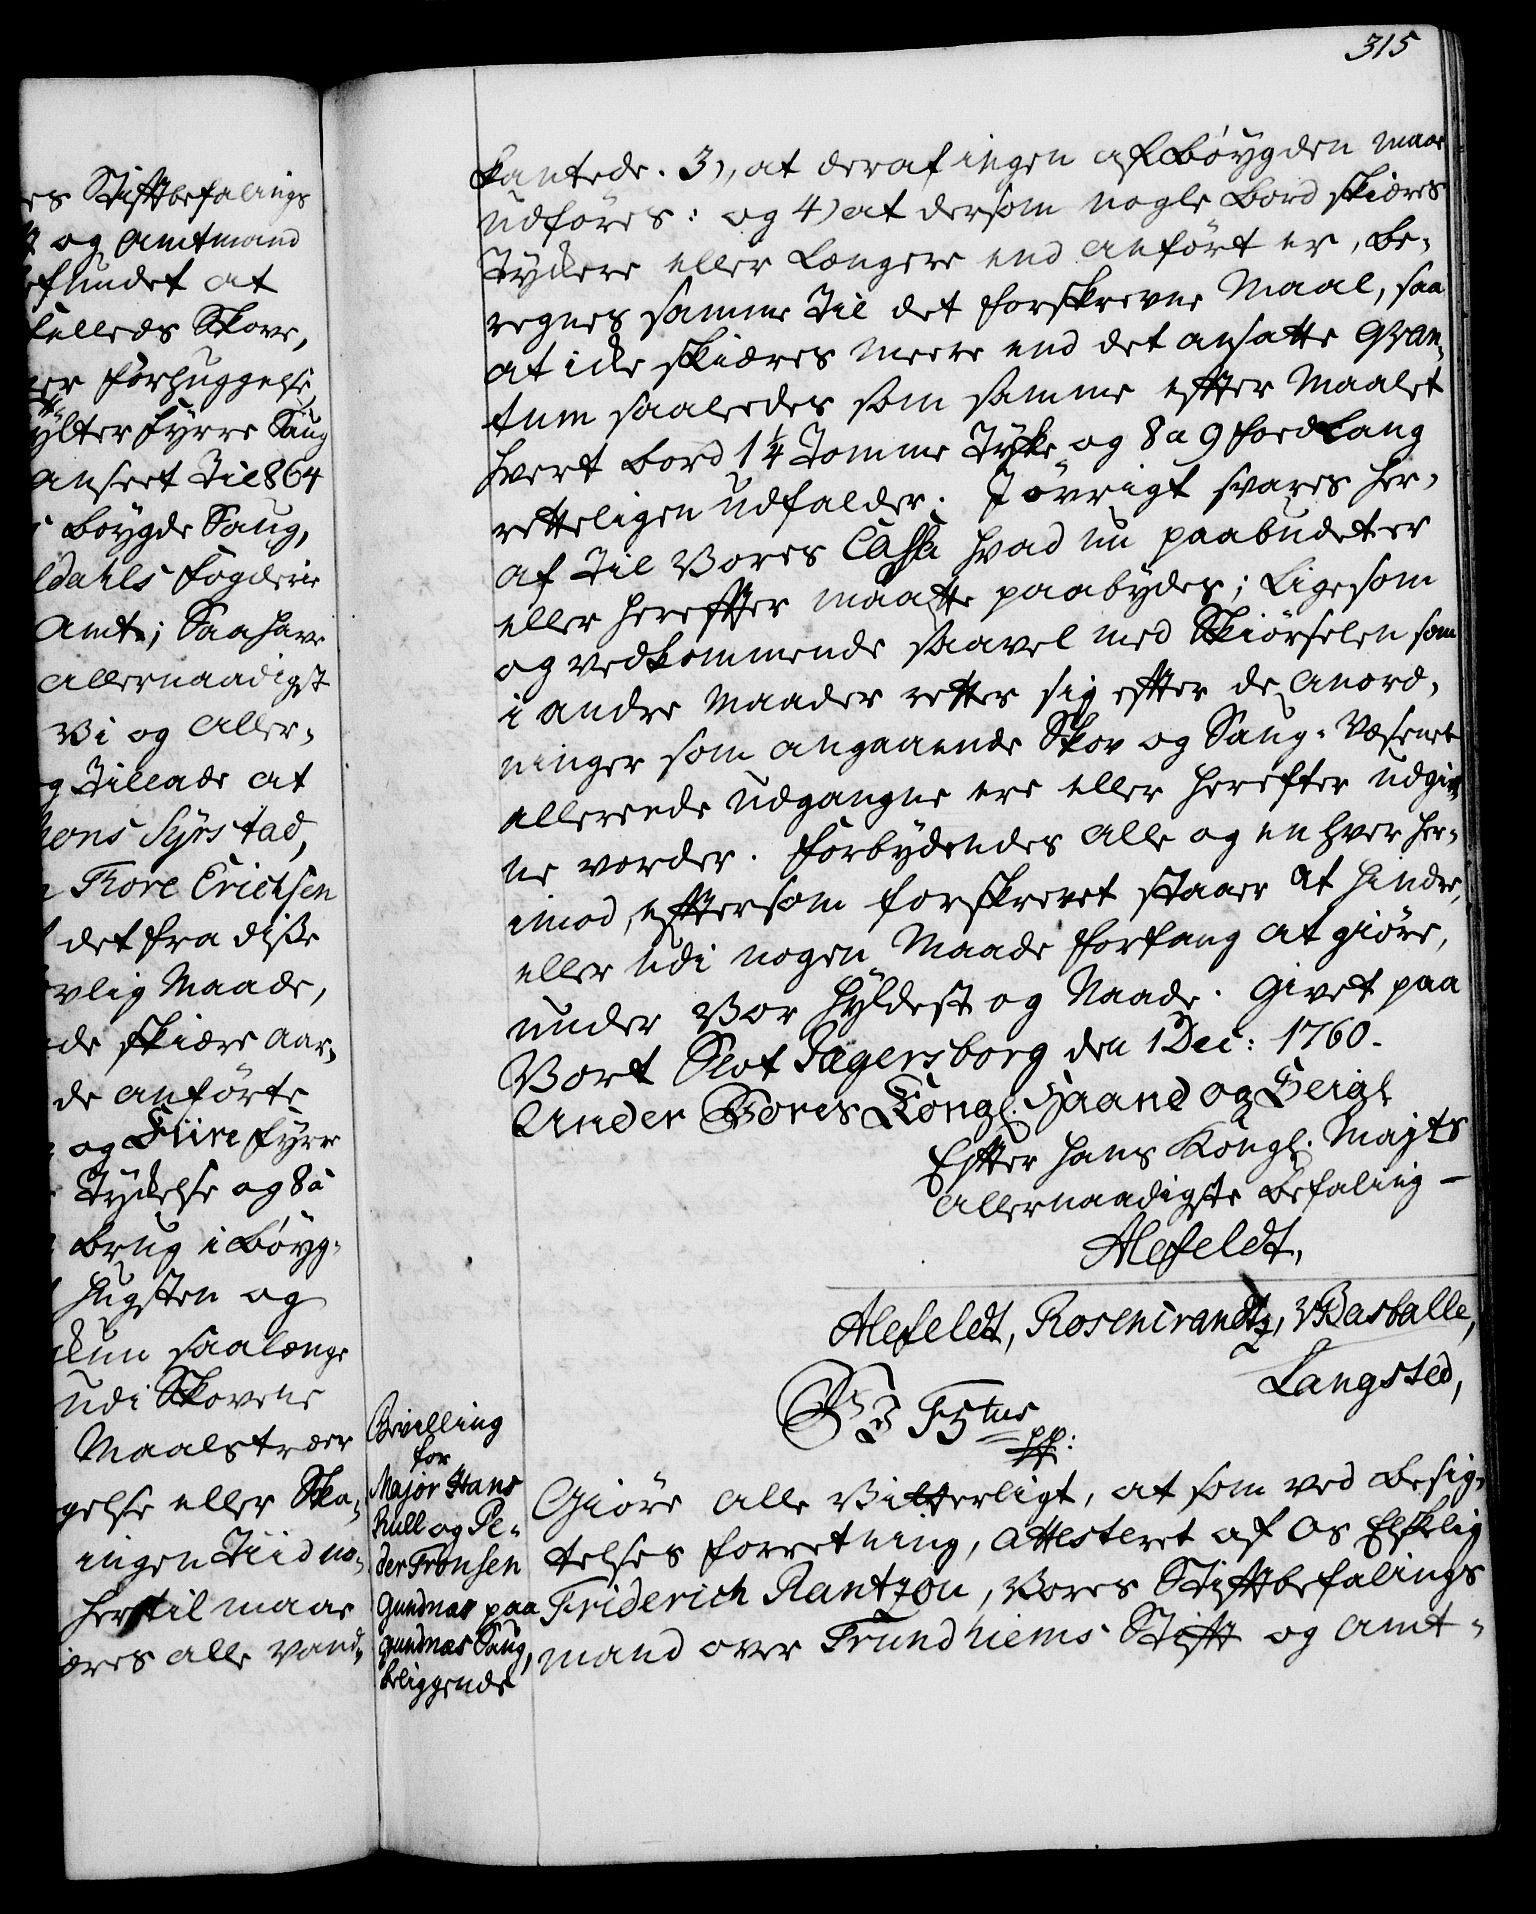 315
es Stiftbefalings
og Amtmand
fundet at
felleds Skove,
er Forhuggelse
ylter Fyrre Saug
anseet til 864
Bøygde Saug,
ldahls Fogderie
Amt; Saa have
allernaadigst
Vi og aller-
g tillade at
ons Syrstad,
Tore Erichsen
det fra disse
vlig Maade,
de skiære aar-
de anførte
og Fiire fyrre
Tykelse og 8 à
brug i Bøyg-
Hugsten og
kun saalænge
udi Skovene
Maalstræer
gelse eller Ska-
ingen Tiid no-
hertil maae
æres alle Vand-
kantede. 3), at deraf ingen af Bøygden maae
udføres: og 4) at dersom nogle Bord skiæres
Tykere eller Længere end anført er, be-
regnes samme til det forskrevne Maal, saa
at icke skiæres meere end det ansatte Qvan-
tum saaledes som samme efter Maalet
hvert bord 1¼ Tomme Tyke og 8 a 9 foed Lang
retteligen udfalder. J øvrigt svares her-
af til Vores Cassa hvad nu paabudet er
eller hereffter maatte paabydes; Ligesom
og vedkommende saavel med Skiørselen som
i andre Maader retter sig effter de Anord-
ninger som angaaende Skov og Saug-Væsenet
allerede udgangne ere eller herefter udgiv-
ne vorder. Forbydendes alle og enhver her-
imod, efftersom forskrevet staaer at hindre,
eller udi nogen Maade forfang at giøre,
under Vor Hyldest og Naade. Givet paa
Vort Slot Jægersborg den 1 Dec: 1760.
Under Vores Kongl. Haand og Seigl
Efter Hans Kongl. Majts
allernaadigste Befaling –
Alefeldt,
Alefeldt, Rosencrandtz, VBasballe,
Langsted,
Bevilling
for
Major Hans
Kull og Pe-
der Tronsen
Gundnæs paa
gundnæs Saug,
beliggende
V J F 5tus
pp:
Giøre alle Vitterligt, at som ved besig-
telses forretning, attesteret af Os Elskelig
Friderich Rantzou, Vores Stiftbefalings
mand over Trundhiems Stift og Amt-